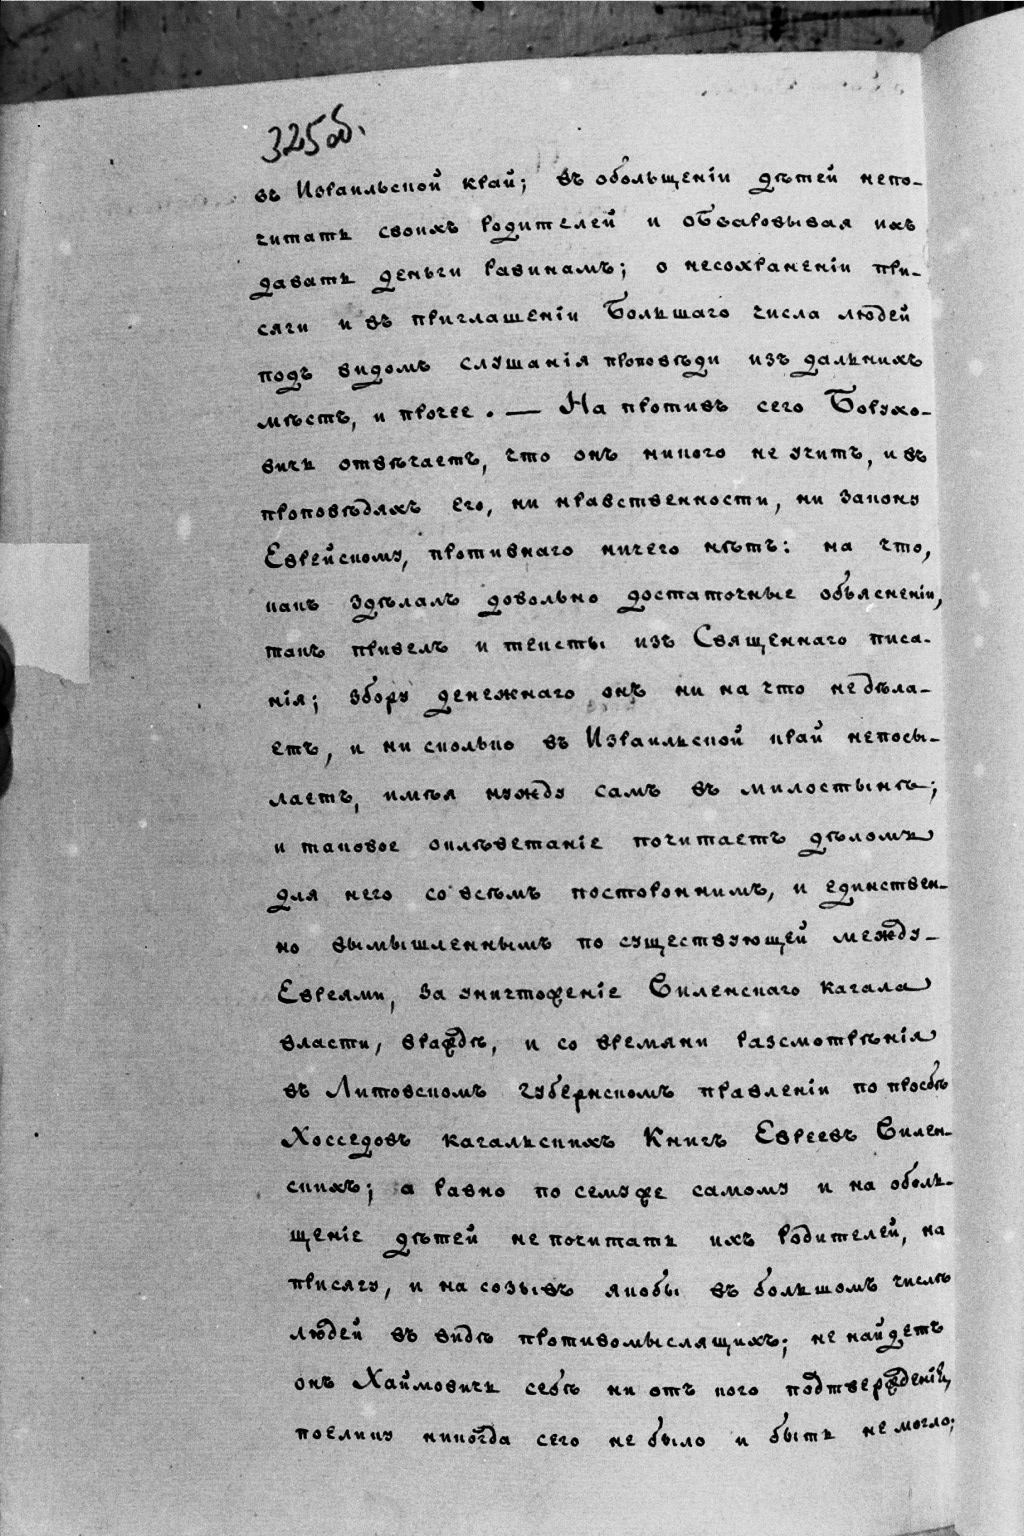 325 об.
въ Израильской край; въ обольщеніи дѣтей непо-
читать своихъ родителей и обваровывая ихъ
давать деньги равинамъ; о несохраненіи при-
сяги и въ приглашеніи большаго числа людей
подъ видомъ слушанія проповѣди изъ дальнихъ
мѣстъ, и прочее. — На противъ сего Борухо-
вичь отвѣчаетъ, что онъ никого не учитъ, и въ
проповѣдяхъ его, ни нравственности, ни закону
Еврейскому, противнаго ничего нѣтъ: на что,
какъ здѣлалъ довольно достаточные объясненіи,
такъ привелъ и тексты изъ Священнаго писа-
нія; збору денежнаго онъ ни на что недѣла-
етъ, и ни сколько въ Израильской край непосы-
лаетъ, имѣя нужду самъ въ милостынѣ;
и таковое оклѣветаніе почитаетъ дѣломъ
для него со всѣмъ постороннимъ, и единствен-
но вымышленнымъ по существующей между-
Евреями, за уничтоженіе Виленскаго кагала
власти, враждѣ, и со времяни разсмотрѣнія
въ Литовскомъ губернскомъ правленіи по прозбѣ
Хосседовъ кагальскихъ книгъ Евреевъ Вилен-
скихъ; а равно по семуже самому и на оболь-
щеніе дѣтей не почитать ихъ родителей, на
присягу, и на созывъ якобы въ большомъ числѣ
людей въ видѣ противомыслящихъ; не найдетъ
онъ Хаймовичь себѣ ни отъ кого подтвержденіи,
поелику никогда сего не было и быть не могло;